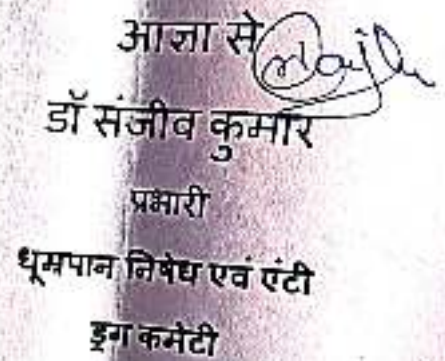 आज्ञा से
डॉ संजीव कुमार
प्रभारी
धूम्रपान निषेध एवं एंटी
ड्रग कमेटी